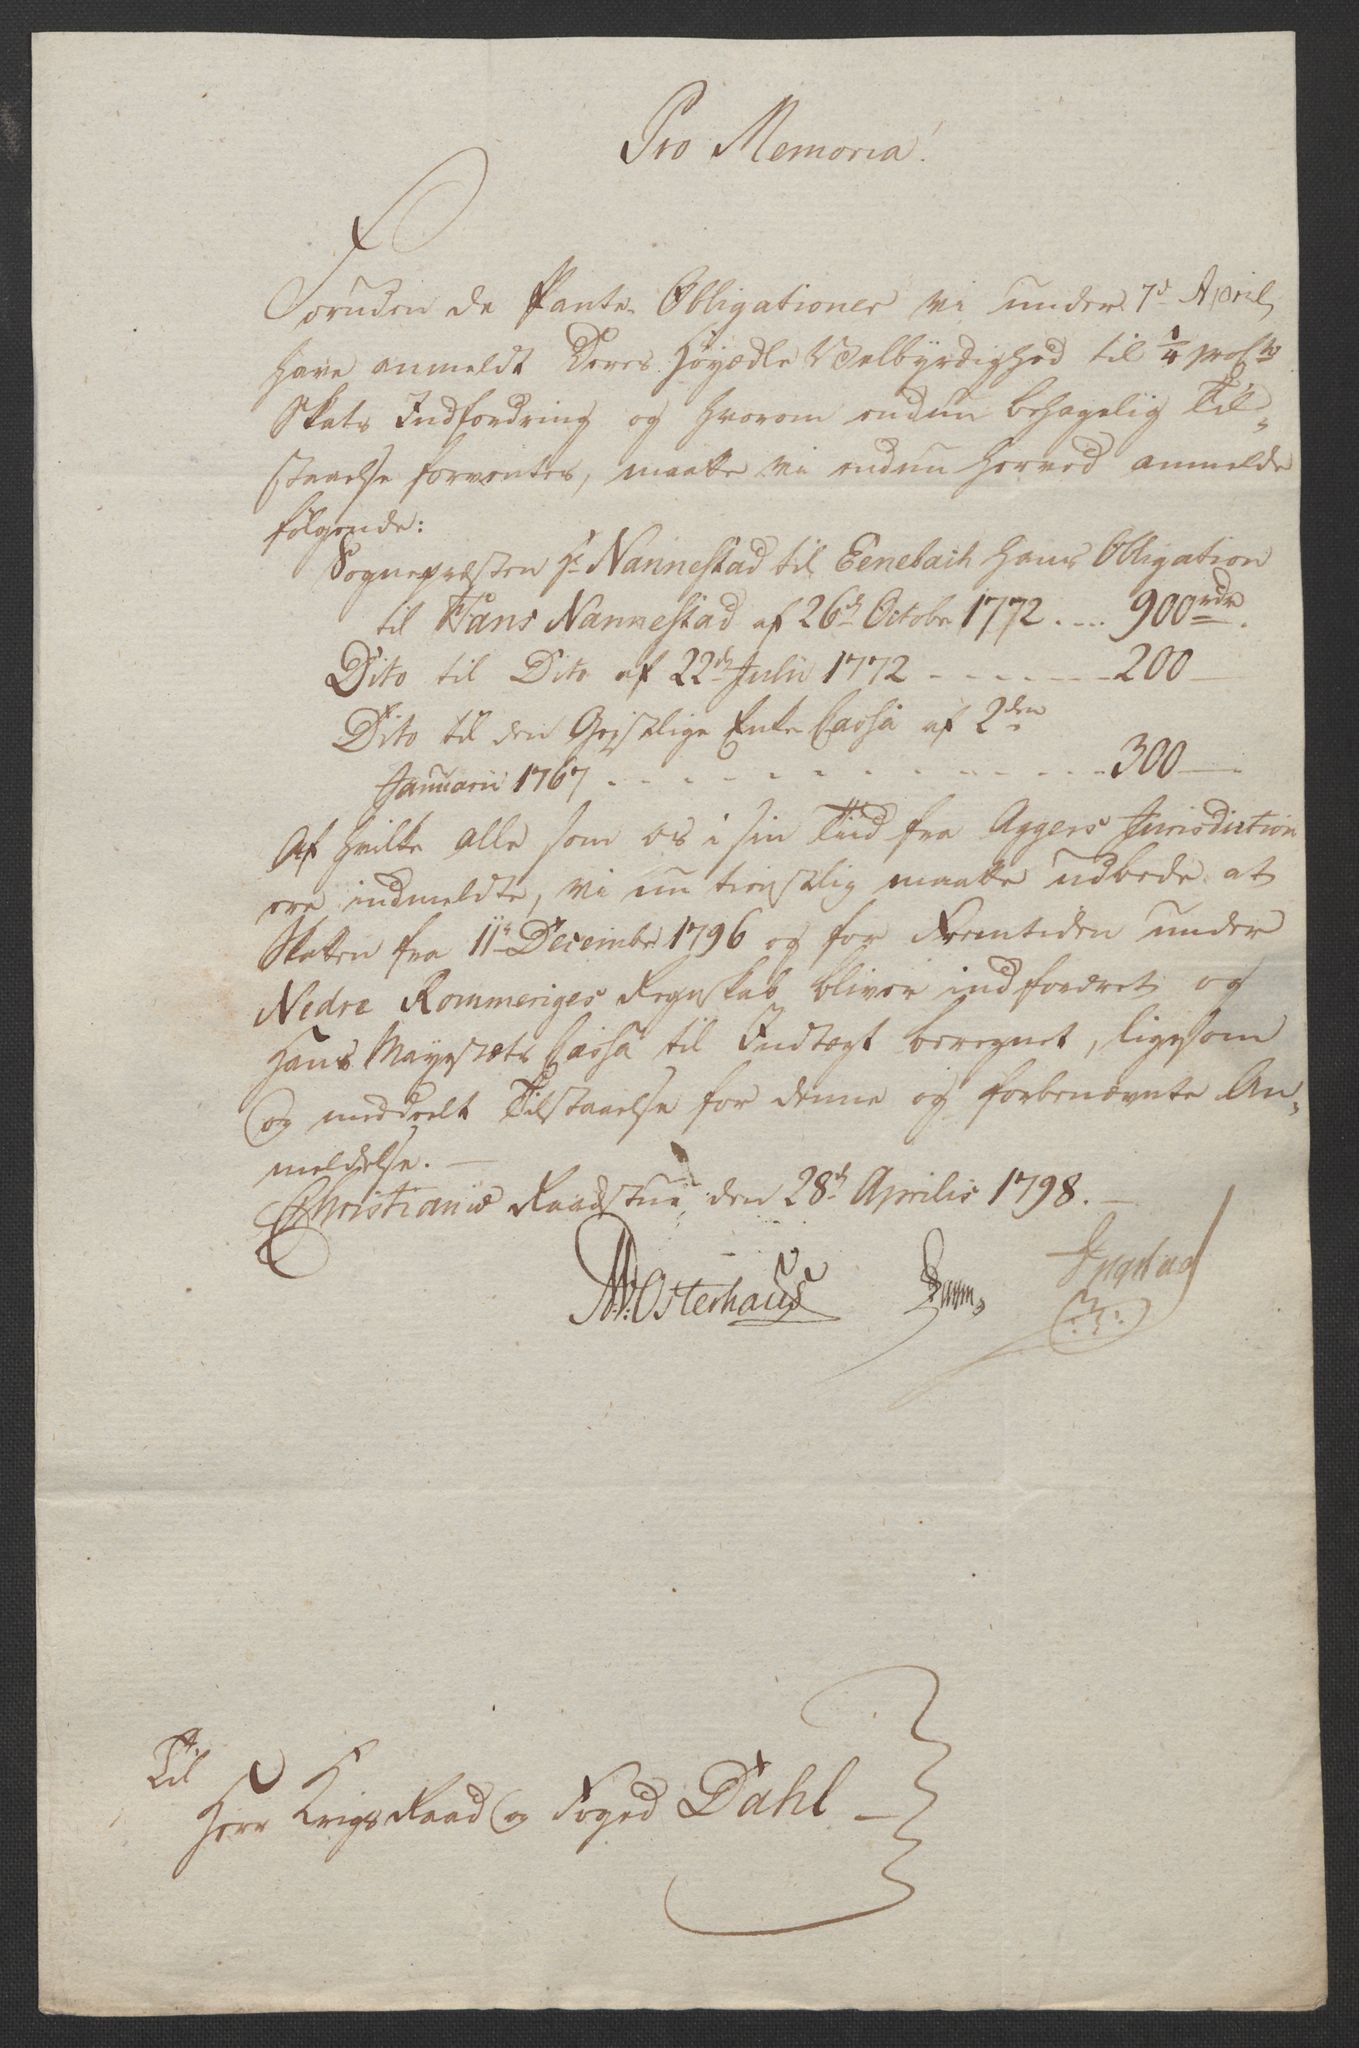 Pro Memoria!
Foruden de Pante Obligationer vi under 7d April
have anmeldt Deres Høyædle Velbyrdighed til 1/4 proCto
Skats Indfordring og hvorom endnu behagelig Til„
staaelse forventes, maatte vi endnu herved anmelde
følgende:
Sognepræsten Hr Nannestad til Eenebach hans Obligation
til Hans Nannestad af 26d Octobr 1772 .... 900 rdr.
Dito til Dito af 22d Julii 1772 - - - - - - 200 —
Dito til den Geistlige Enke Cassa af 2den
Januarii 1767 . - - - - - - - - - - - - 300 —
Af hvilke alle som os i sin Tiid fra Aggers Jurisdiction
ere indmeldte, vi nu tienstlig maatte udbede at
Skatten fra 11te December 1796 og for Fremtiden under
Nedre Rommeriges Regnskab bliver indfordret og
Hans Mayestæts Cassa til Indtægt beregnet, ligesom
og meddeelt Tilstaaelse for denne og forbenævnte An„
meldelse. —
Christianiæ Raadstue, den 28d Aprilis 1798. —
Osterhaus
Til
Herr Krigs Raad og Foged Dahl —